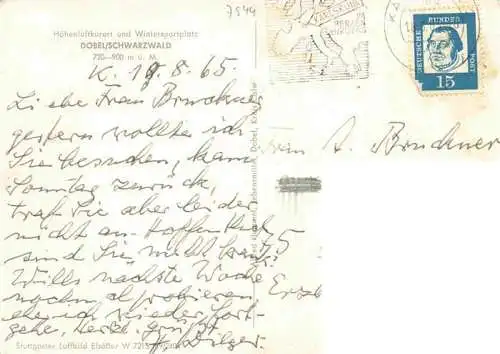 7544
Höhenluftkurort und Wintersportplatz
DOBEL/SCHWARZWALD
720—900 m ü. M.
K. 19.8.65.
Liebe Frau Bruckner
gestern wollte ich
Sie besuchen, kam
Sonntag zurück,
traf Sie aber leider
nicht an. Hoffentlich
sind Sie nicht krank,
Will's nächste Woche
nochmal probieren
ehe ich wieder fort-
gehe. Herzl. grüßt
Dilger.
Stuttgarter Luftbild Elsäßer W 7215
Frau A. Bruckner
75
DEUTSCHE BUNDESPOST
15
KA